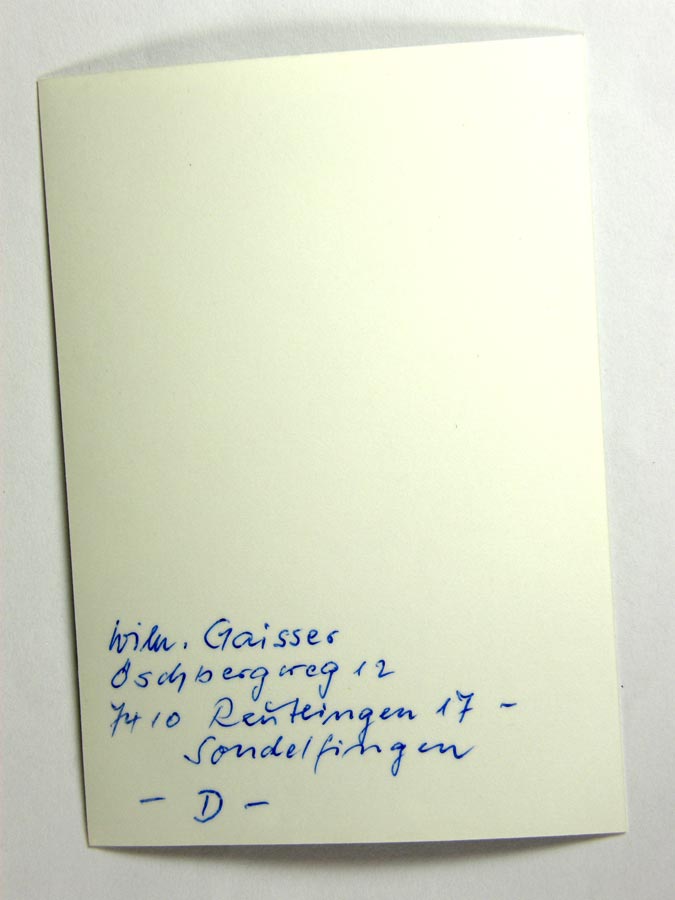 Wilh. Gaisser
Öschbergweg 12
7410 Reutlingen 17 -
Sondelfingen
- D -